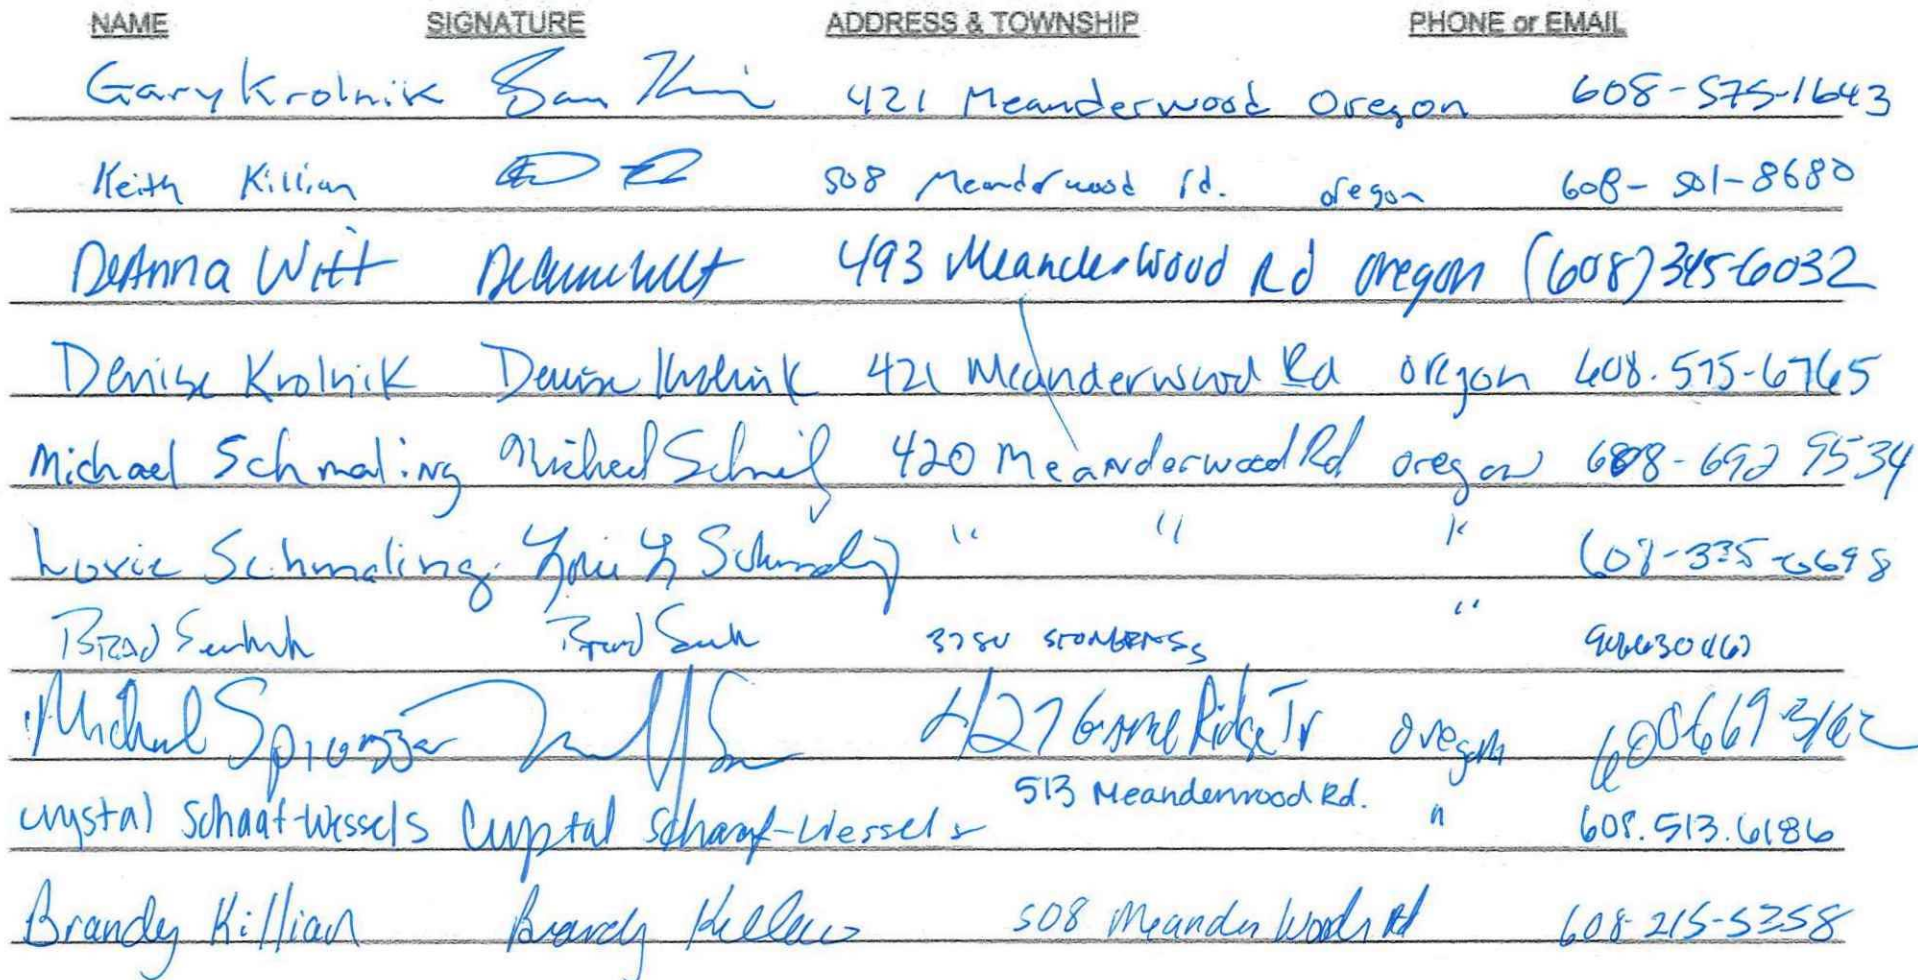 NAME SIGNATURE ADDRESS & TOWNSHIP PHONE or EMAIL
Gary Krolnik 421 Meanderwood Oregon 608-575-1643
Keith Killian 508 Meanderwood rd. oregon 608-501-8680
DeAnna Witt DeAnna Witt 493 Meanderwood Rd oregon (608)345-6032
Denise Krolnik Denise Krolnik 421 Meanderwood Rd oregon 608.575-6765
Michael Schmaling Michael 420 Meanderwood Rd oregon 608-692 9534
Lorie Schmaling Lorie L Schmaling " " " 608-335-6698
Brad Brad "
Michael 427 Ridge Tr oregon
Crystal Schaaf-Wessels Crystal Schaaf-Wessels 513 Meanderwood Rd. " 608.513.6186
Brandy Killian Brandy Killian 508 Meander Woods Rd 608-215-5358